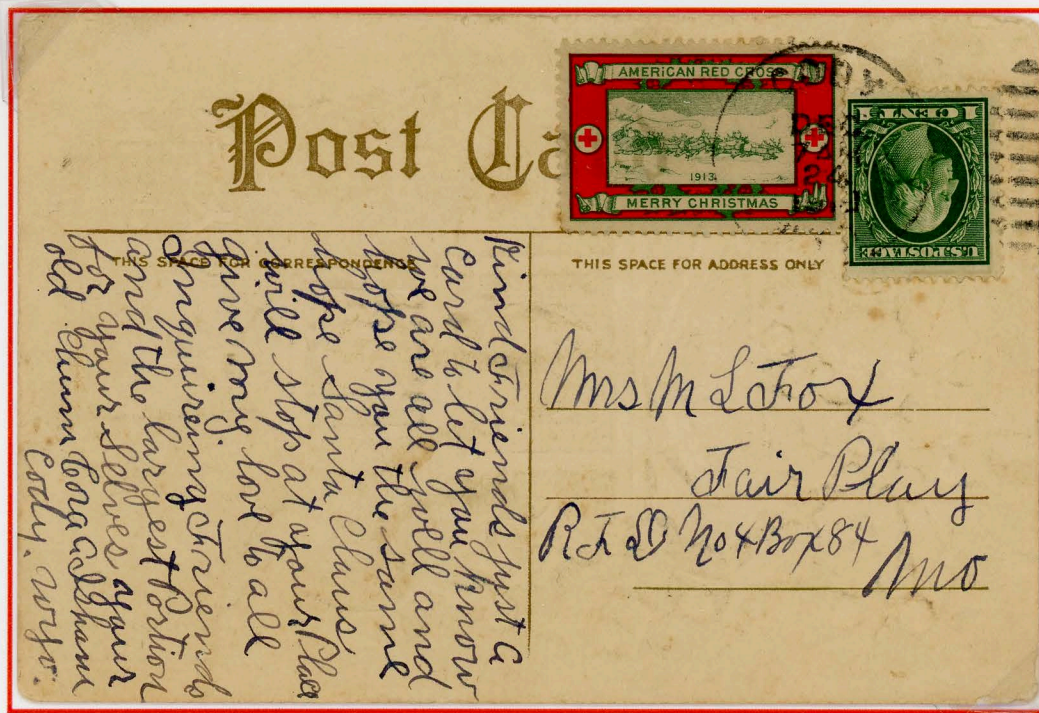 Post Ca
AMERICAN RED CROSS
1913
MERRY CHRISTMAS
CODY
DEC
24
1 CENT 1
U.S. POSTAGE
THIS SPACE FOR CORRESPONDENCE
THIS SPACE FOR ADDRESS ONLY
Kind Friends just a
Card to let you know
we are all well and
hope you the same
hope Santa Claus
will stop at your Place
give my love to all
Inquireing Friends
and the largest Portion
for your Selves your
old Chum Cora A. Isham
Cody. Wyo.
Mrs M L Fox
Fair Play
R F D No 4 Box 84
Mo